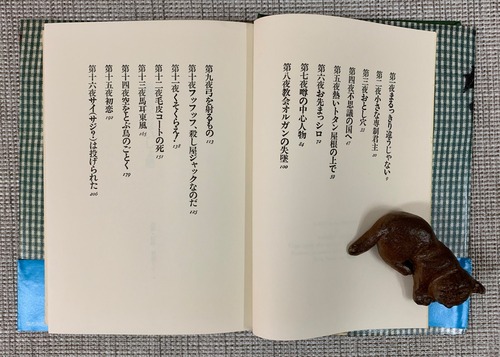 第一夜まるっきり違うじゃない 9
第二夜小さな専制君主 20
第三夜おとし穴 35
第四夜不思議の国へ 47
第五夜熱いトタン屋根の上で 58
第六夜お先まっシロ 72
第七夜噂の中心人物 84
第八夜教会オルガンの失墜 100
第九夜弓を射るもの 113
第十夜フッフッフッ殺し屋ジャックなのだ 125
第十一夜くそてくらえ! 138
第十二夜毛皮コートの死 151
第十三夜馬耳東風 165
第十四夜空をとぶ鳥のごとく 179
第十五夜初恋 192
第十六夜サイ(サジ?)は投げられた 206